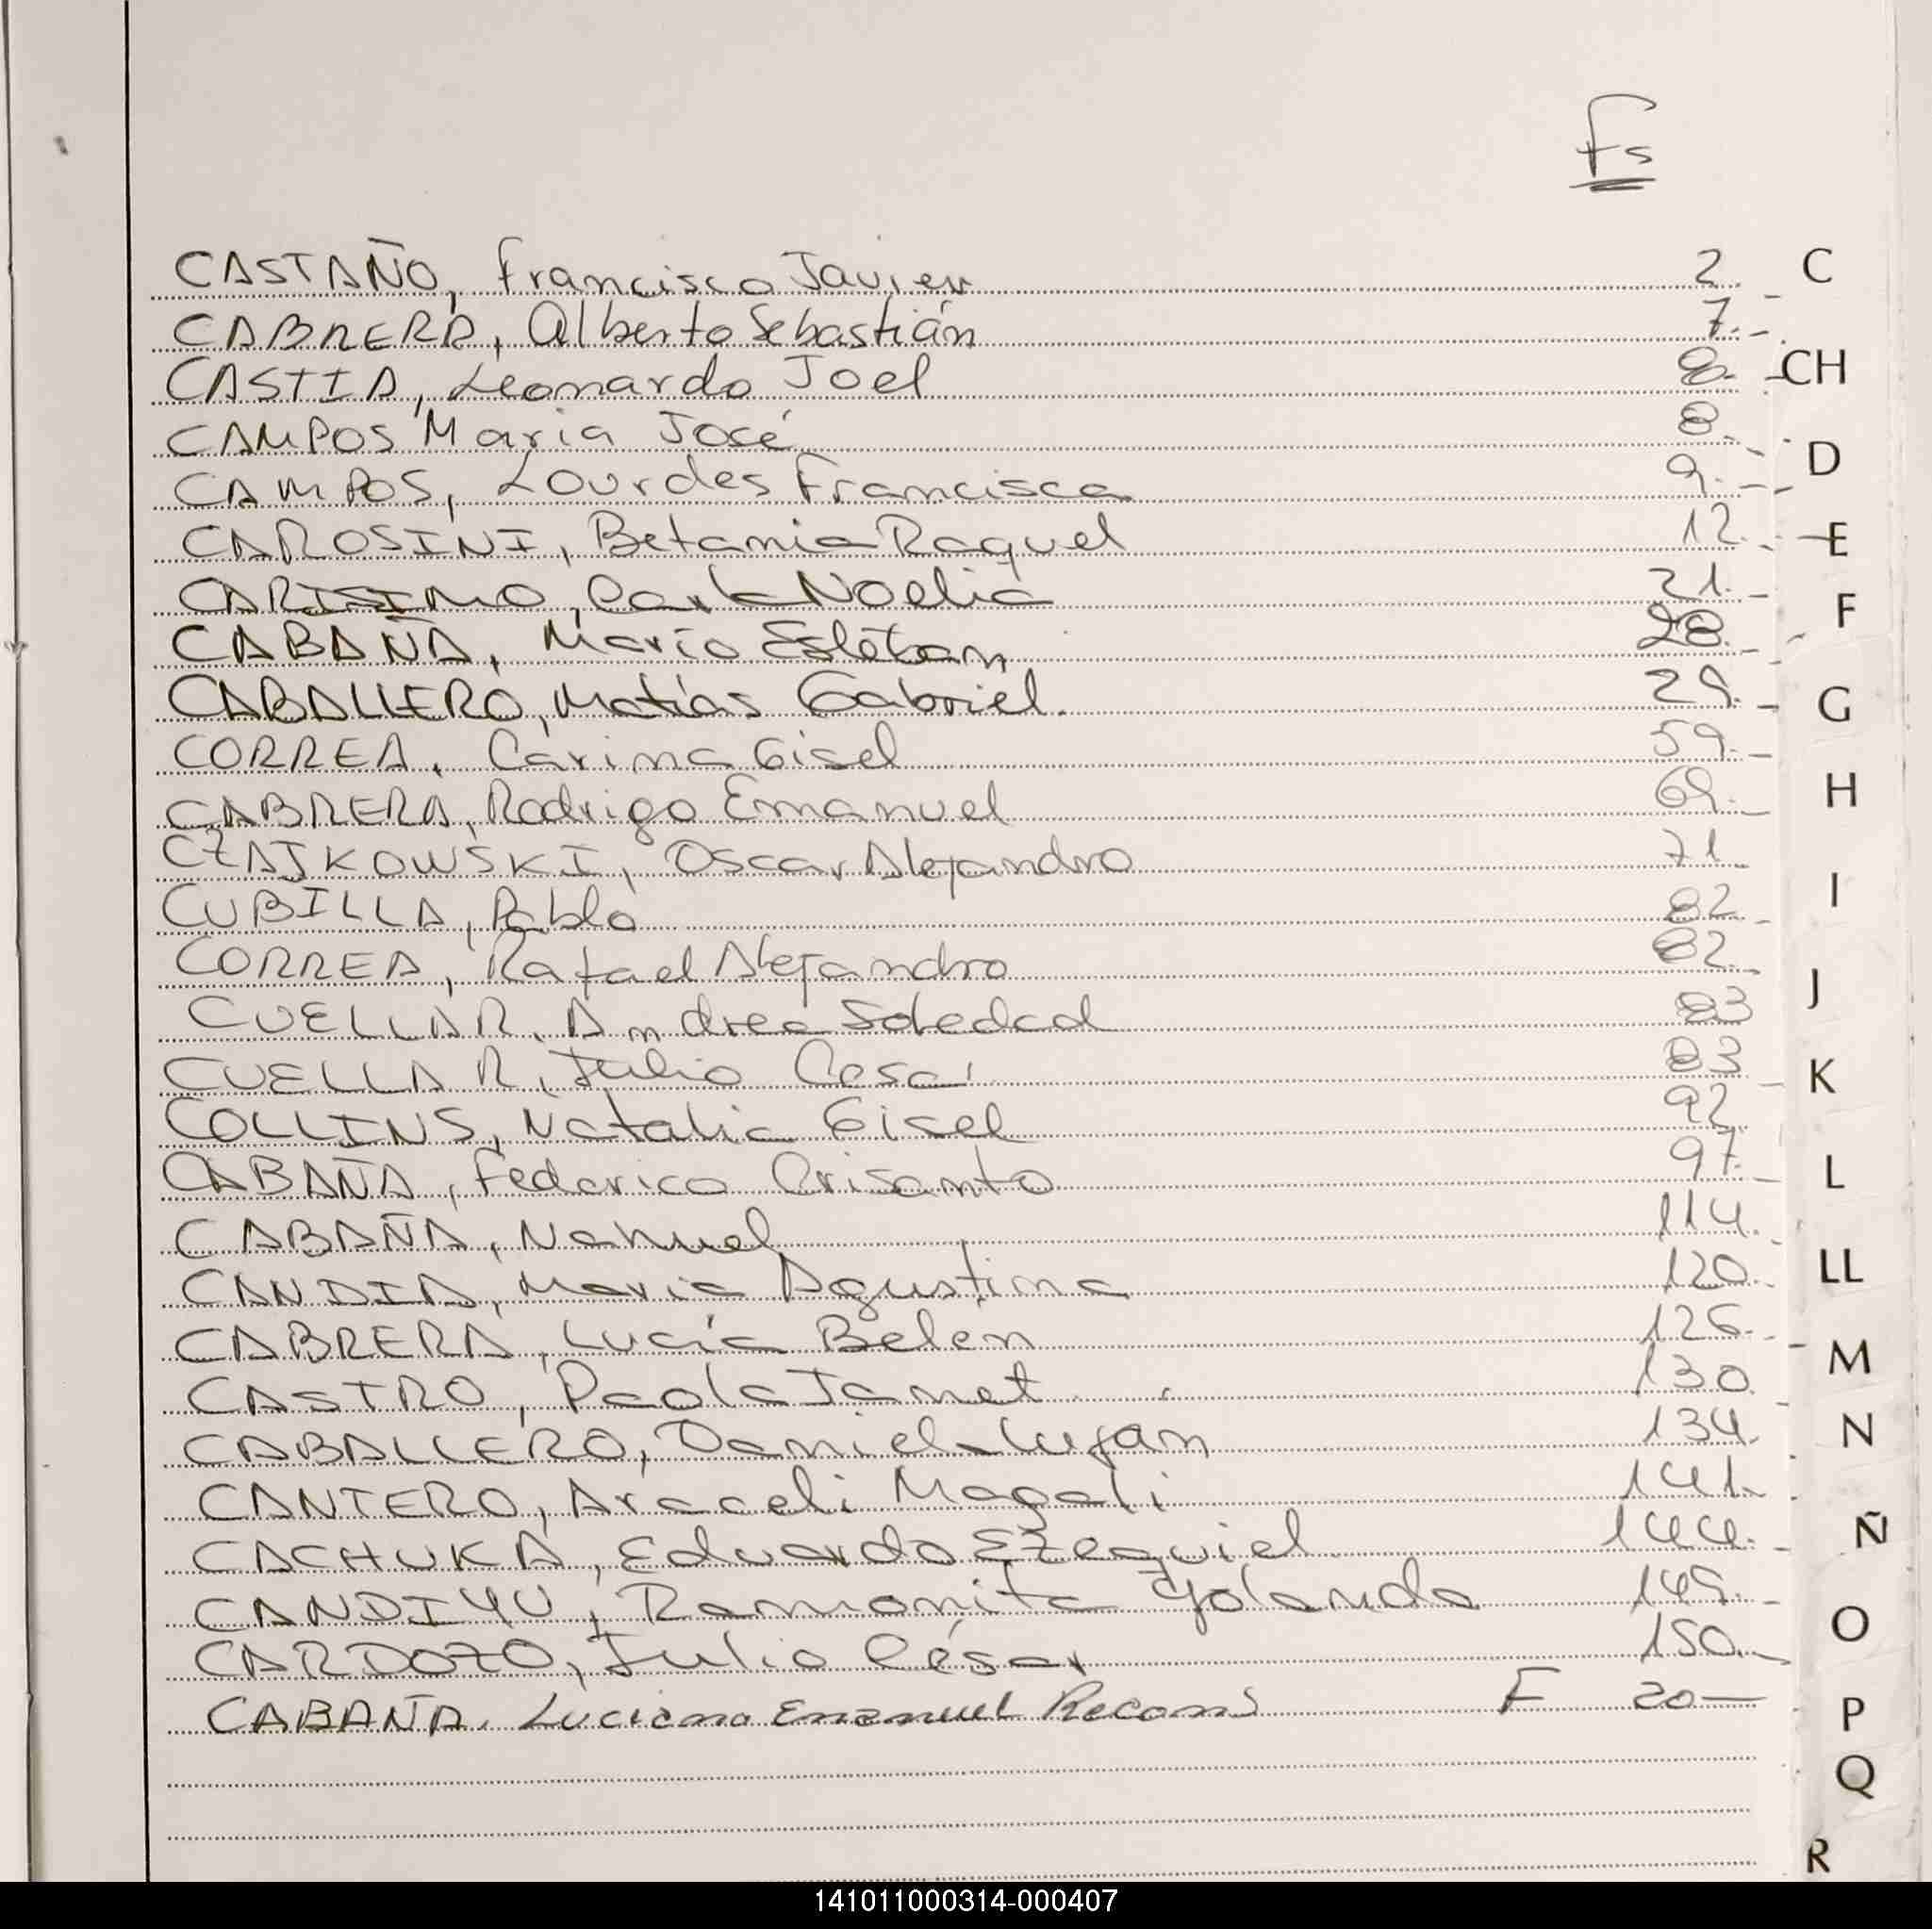 Fs
CASTAÑO, Francisco Javier 2 C
CABRERA, Alberto Sebastián 7.-
CASTIA, Leonardo Joel 8- CH
CAMPOS María José 8
CAMPOS, Lourdes Francisca 9.- D
CAROSINI, Betania Raquel 12.- E
CARISIMO, Carla Noelia 21.- F
CABAÑA, Mario Esteban 28.-
CABALLERO, Matías Gabriel. 29.- G
CORREA, Carina Gisel 59.-
CABRERA, Rodrigo Emanuel 69.- H
CZAJKOWSKI, Oscar Alejandro 71
CUBILLA, Pablo 82.- I
CORREA, Rafael Alejandro 82.- J
CUELLAR, Andrea Soledad 83
CUELLAR, Julio Cesar 83 K
COLLINS, Natalia Gisel 92
CABAÑA, Federico Crisanto 97.- L
CABAÑA, Nahuel 114.-
CANDIA, María Agustina 120.- LL
CABRERA, Lucía Belen 126.-
CASTRO, Paola Janet 130. M
CABALLERO, Daniel Lujan 134. N
CANTERO, Araceli Magali 141.-
CACHUKA, Eduardo Ezequiel 144.- Ñ
CANDIYU, Ramonita Yolanda 149.-
CARDOZO, Julio César 150.- O
CABAÑA, Luciano Emanuel F 20- P
Q
R
141011000314-000407